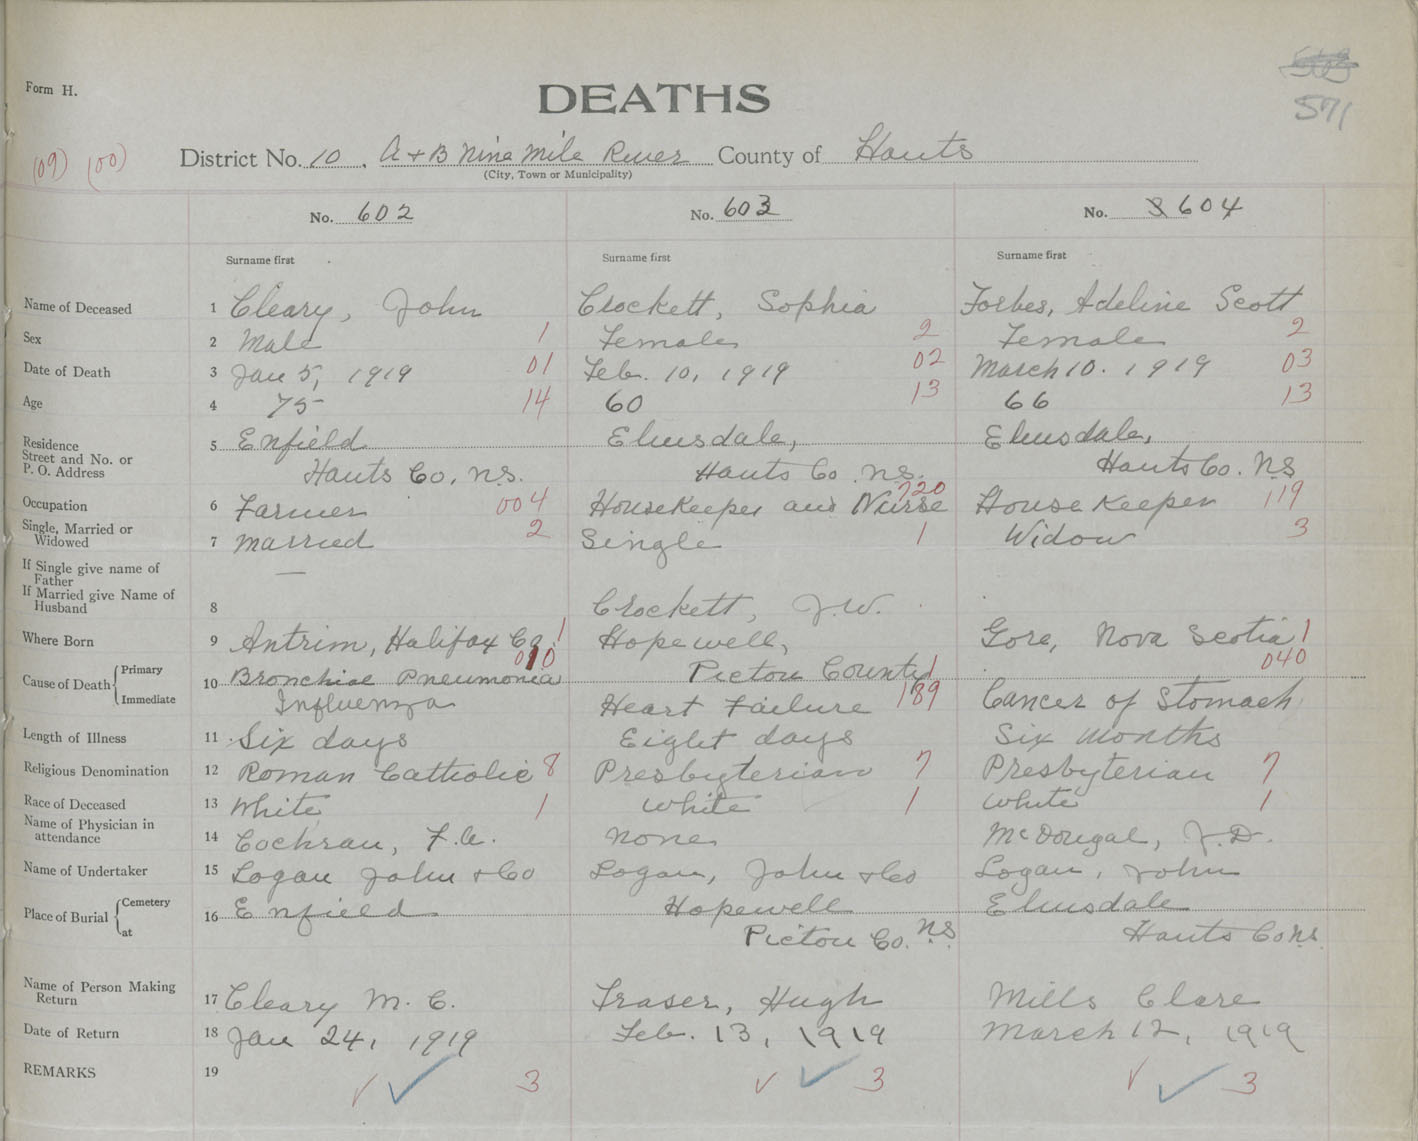 Form H.
DEATHS
571
(09) (00)
District No. 10, A + B Nine Mile River County of Hants
(City, Town or Municipality)
No. 602 No. 603 No. 604
Surname first Surname first Surname first
Name of Deceased 1 Cleary, John Crockett, Sophia Forbes, Adeline Scott
Sex 2 Male 1 Female 2 Female 2
Date of Death 3 Jan 5, 1919 01 Feb. 10, 1919 02 March 10. 1919 03
Age 4 75 14 60 13 66 13
Residence
Street and No. or
P. O. Address
5 Enfield Elmsdale, Elmsdale,
Hants Co, N.S. Hants Co. N.S. Hants Co. N.S
Occupation 6 Farmer 004 Housekeeper and Nurse 720 House Keeper 119
Single, Married or
Widowed
7 Married 2 Single 1 Widow 3
If Single give name of
Father —
If Married give Name of
Husband
8 Crockett, J.W.
Where Born 9 Antrim, Halifax Co. 1 Hopewell, Gore, Nova Scotia 1
Pictou County 1
Cause of Death { Primary 10 Bronchial Pneumonia 010 189 040
Immediate Influenza Heart Failure Cancer of Stomach
Length of Illness 11 Six days Eight days Six Months
Religious Denomination 12 Roman Cattholic 8 Presbyterian 7 Presbyterian 7
Race of Deceased 13 White 1 White 1 White 1
Name of Physician in
attendance
14 Cochran, F.A. none McDougal, J.D.
Name of Undertaker 15 Logan John + Co Logan, John + Co Logan, John
Place of Burial { Cemetery
at
16 Enfield Hopewell Elmsdale
Pictou Co. N.S Hants Co N.S.
Name of Person Making
Return
17 Cleary M. C. Fraser, Hugh Mills Clare
Date of Return 18 Jan 24, 1919 Feb. 13, 1919 March 12, 1919
REMARKS 19 3 3 3